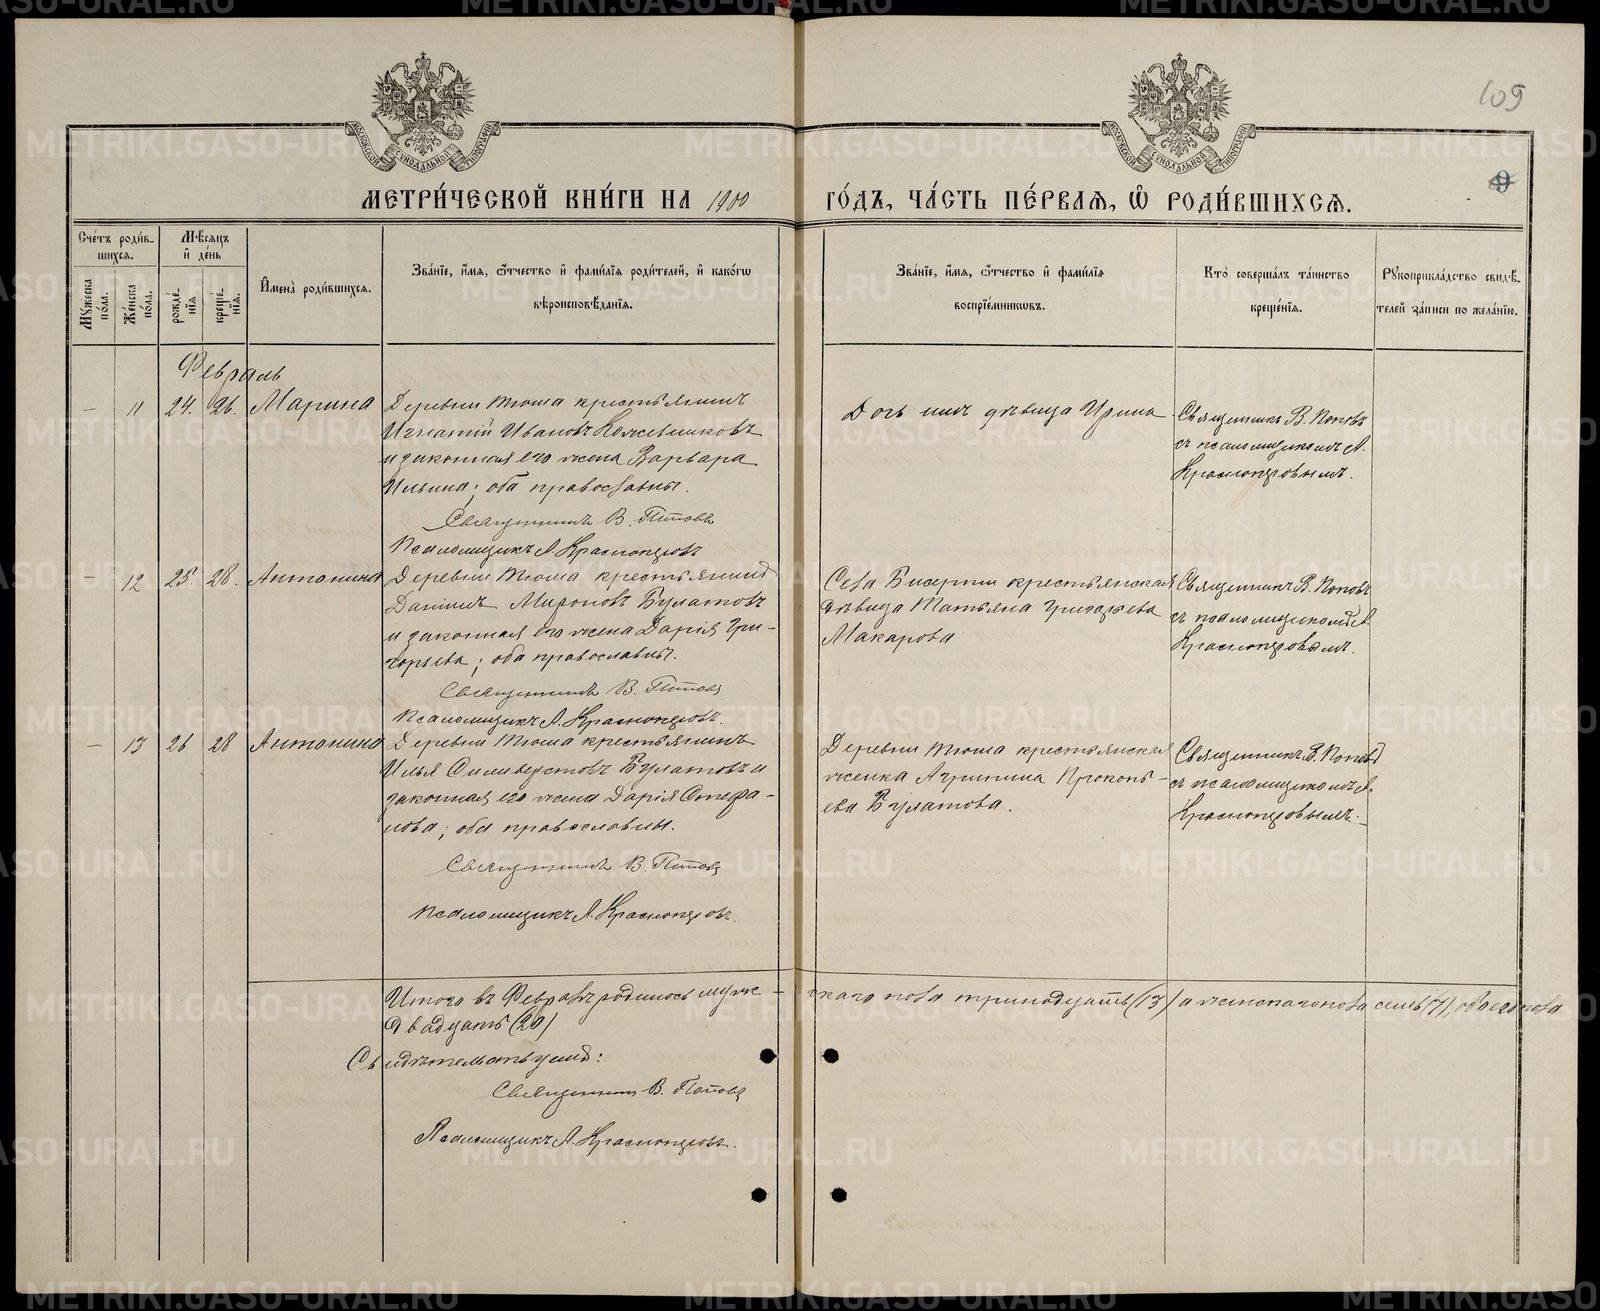 109
9
МОСКОВСКОЙ СѴНОДАЛЬНОЙ ТИПОГРАФІИ
МОСКОВСКОЙ СѴНОДАЛЬНОЙ ТИПОГРАФІИ
МЕТРИ́ЧЕСКОЙ КНИ́ГИ НА 1900 ГО́ДЪ, ЧА́СТЬ ПЕ́РВАЯ, Ѽ РОДИ́ВШИХСЯ.
Сче́тъ роди́вшихся.
Мѣ́сяцъ и҆ де́нь
И҆мена̀ роди́вшихся.
Зва́нїе, и҆́мя, ѻ҆́тчество и҆ фами́лїя роди́телей, и҆ како́гѡ
вѣроисповѣ́данїя.
Зва́нїе, и҆́мя, ѻ҆́тчество и҆ фами́лїя
воспрїе́мникѡвъ.
Кто̀ соверша́лъ та́инство
креще́нїя.
Рукоприкла́дство свидѣ́-
телей за́писи по жела́нїю.
Му́жеска по́ла.
Же́нска по́ла.
рожде́нїя
креще́нїя.
Февраль
- 11 24. 26. Марина
Деревни Тюша крестьянинъ
Игнатій Ивановъ Кожевниковъ
и законная его жена Варвара
Ильина; оба православны.
Священникъ В. Поповъ
Псаломщикъ А. Краснопѣровъ
Дочь ихъ дѣвица Ирина
Священникъ В. Поповъ
съ псаломщикомъ А.
Краснопѣровымъ.
- 12 25. 28. Антонина
Деревни Тюша крестьянинъ
Даніилъ Мироновъ Булатовъ
и законная его жена Дарія Гри-
горьева; оба православны.
Священникъ В. Поповъ
Псаломщикъ А. Краснопѣровъ.
Села Бисерти крестьянская
дѣвица Татьяна Григорьева
Макарова
Священникъ В. Поповъ
съ псаломщикомъ А.
Краснопѣровымъ.
- 13 26 28 Антонина
Деревни Тюша крестьянинъ
Илья Силиверстовъ Булатовъ и
законная его жена Дарія Стефа-
нова; оба православны.
Священникъ В. Поповъ
Псаломщикъ А. Краснопѣровъ.
Деревни Тюша крестьянская
женка Агрипина Прокопь-
ева Булатова.
Священникъ В. Поповъ
съ псаломщикомъ А.
Краснопѣровымъ.
Итого въ Февралѣ родилось муже- скаго пола тринадцать (13) а женскаго пола семь (7), обоего пола
двадцать (20)
Свидѣтельствуемъ:
Священникъ В. Поповъ
Псаломщикъ А. Краснопѣровъ.
METRIKI.GASO-URAL.RU